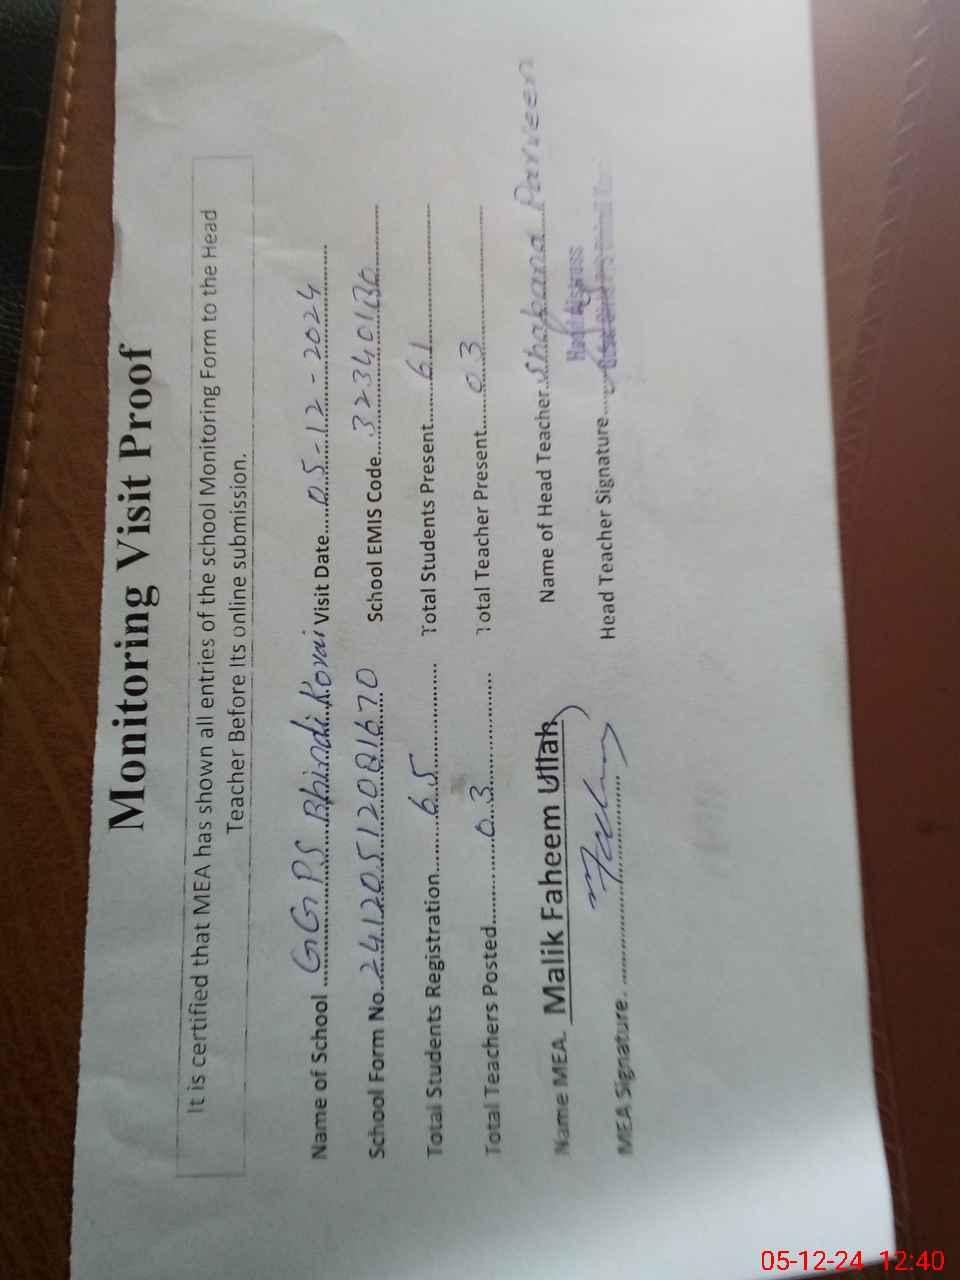 Monitoring Visit Proof
It is certified that MEA has shown all entries of the school Monitoring Form to the Head
Teacher Before Its online submission.
Name of School GGPS Bhindi Korai Visit Date 05-12-2024
School Form No. 24120512001670 School EMIS Code
Total Students Registration 65 Total Students Present 61
Total Teachers Posted 03 Total Teacher Present 03
Name MEA. Malik Faheem Ullah Name of Head Teacher Shabana Parveen
MEA Signature. Head Teacher Signature
05-12-24 12:40